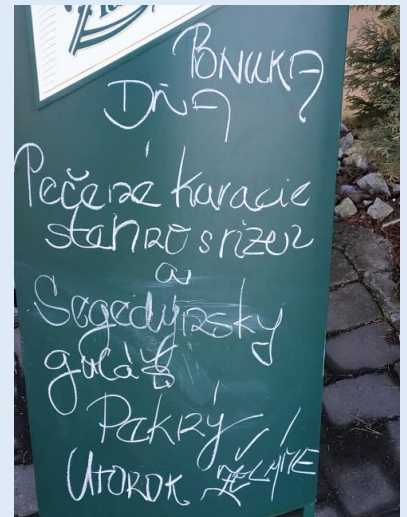 PONUKA
DŇA
Pečené kuracie
stehno s rizeuz
a
Segedínsky
guláš
Pekný
UTOROK ŽELÁME